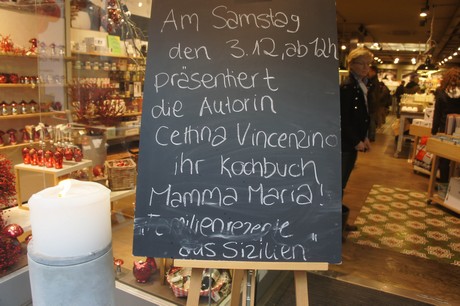 Am Samstag
den 3.12, ab 12h
präsentiert
die Autorin
Cettina Vincenzino
ihr Kochbuch
Mamma Maria!
Familienrezepte
aus Sizilien"